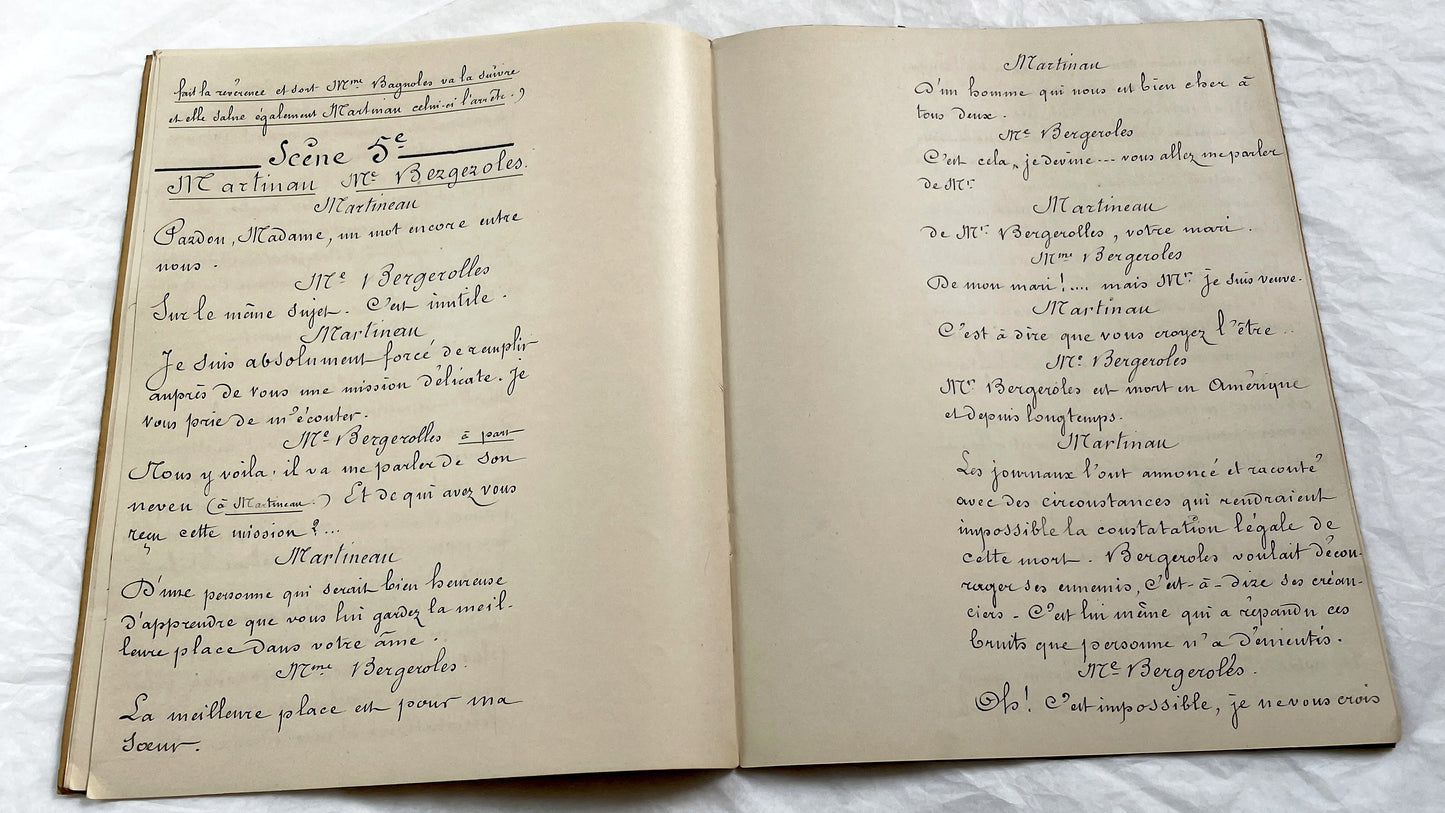 fait la révérence et sort Mme Bagnoles va la suivre
et elle salue également Martinau celui-ci l'arrête.)
Scène 5e
Martinau Me Bergeroles.
Martineau
Pardon, Madame, un mot encore entre
nous.
Me Bergerolles
Sur le même sujet. C'est inutile.
Martineau
Je suis absolument forcé de remplir
auprès de vous une mission délicate. Je
vous prie de m'écouter.
Me Bergerolles à part
Nous y voilà. il va me parler de son
neveu (à Martineau.) Et de qui avez vous
reçu cette mission?...
Martineau
D'une personne qui serait bien heureuse
d'apprendre que vous lui gardez la meil-
leure place dans votre âme.
Mme Bergeroles.
La meilleure place est pour ma
sœur.
Martinau
D'un homme qui nous est bien cher à
tous deux.
Me Bergeroles
C'est cela, je devine... vous allez me parler
de Mr
Martineau
de Mr Bergerolles, votre mari.
Mme Bergeroles
De mon mari!.... mais Mr je suis veuve.
Martinau
C'est à dire que vous croyez l'être..
Me Bergeroles
Mr Bergeroles est mort en Amérique
et depuis longtemps.
Martinau
Les journaux l'ont annoncé et raconté
avec des circonstances qui rendraient
impossible la constatation légale de
cette mort. Bergeroles voulait décou-
rager ses ennemis, c'est-à-dire ses créan-
ciers - C'est lui même qui a répandu ces
bruits que personne n'a démentis.
Me Bergeroles.
Oh! C'est impossible, je ne vous crois